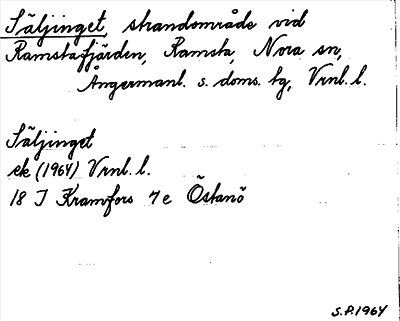 Säljinget, strandområde vid
Ramstafjärden, Ramsta, Nora sn,
Ångermanl. s. doms. tg, Vrnl. l.
Säljinget
ek (1964) Vrnl. l.
18 I Kramfors 7 e Östanö
S.P. 1964